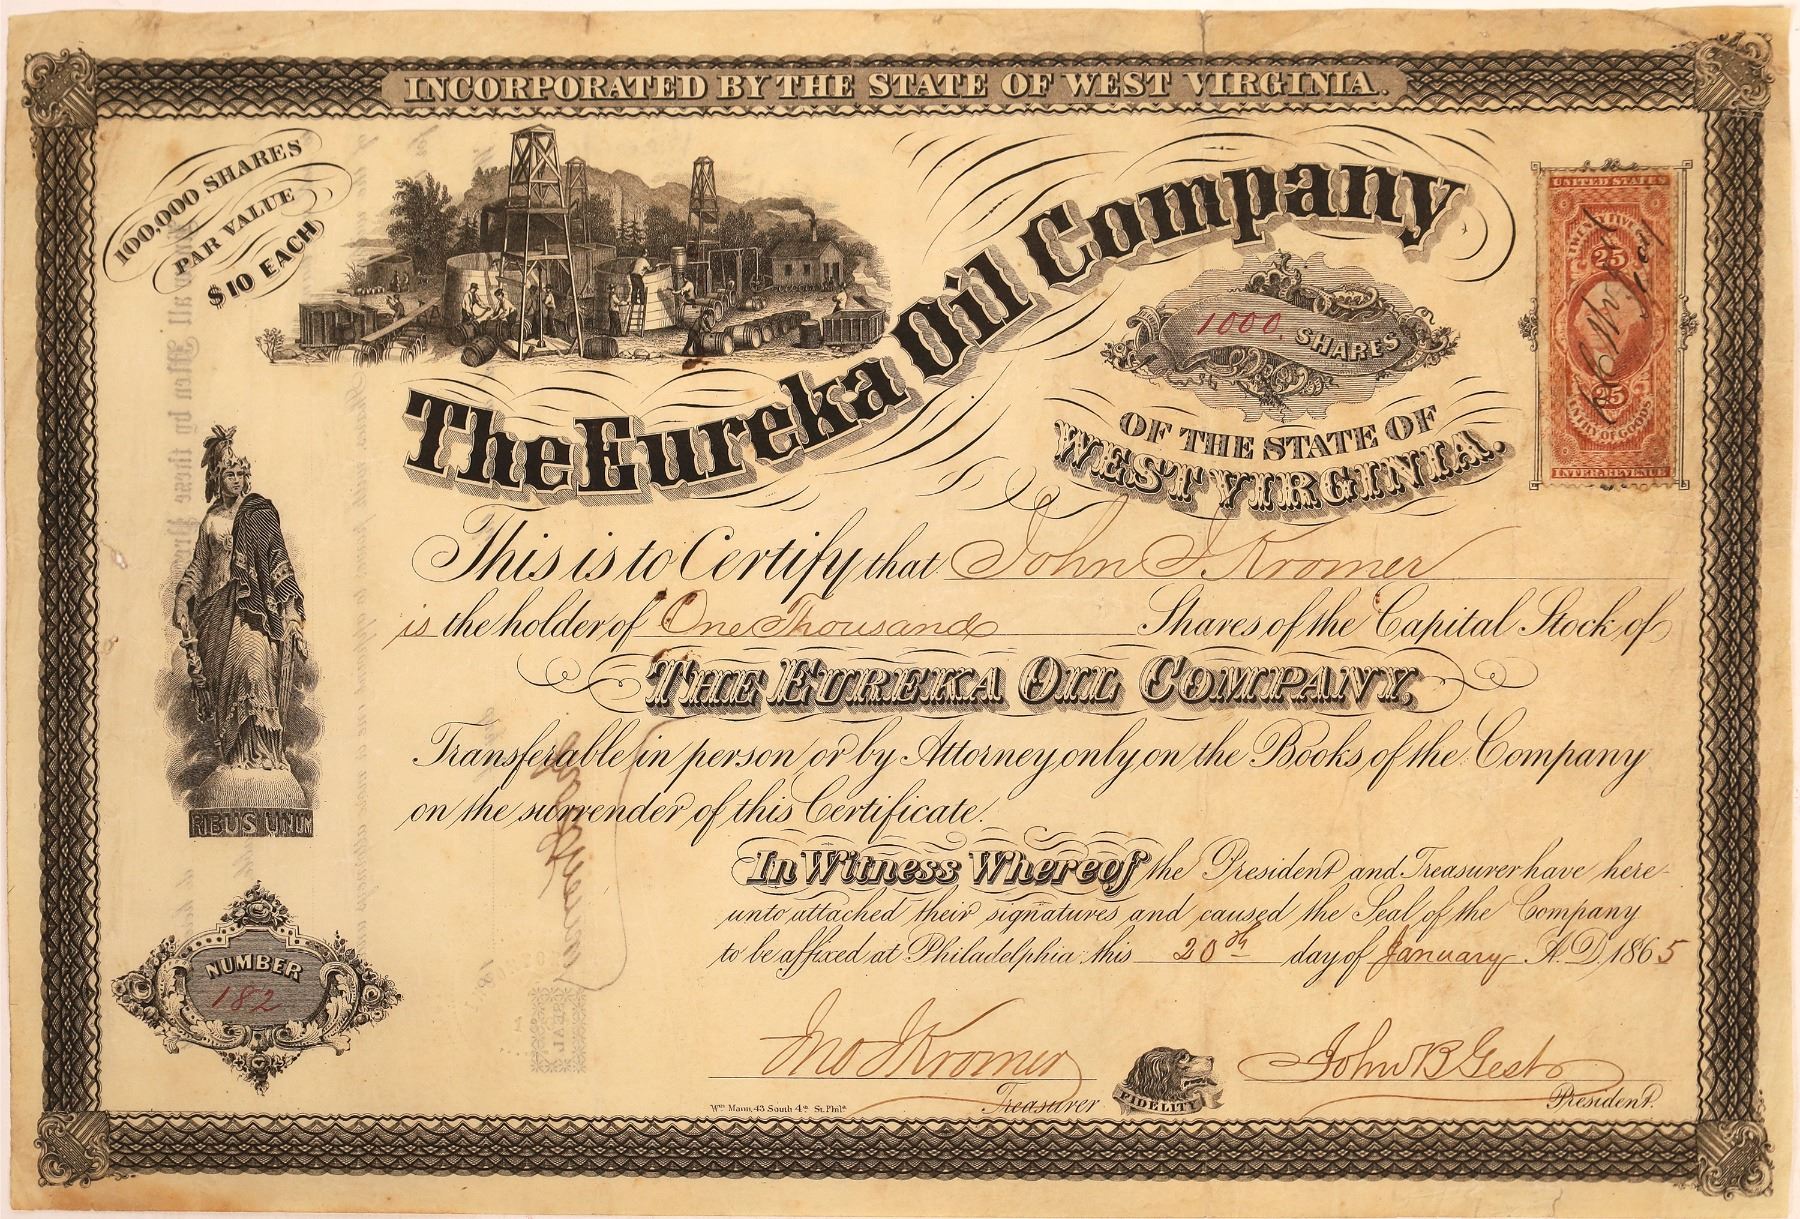 INCORPORATED BY THE STATE OF WEST VIRGINIA.
100,000 SHARES
PAR VALUE
$10 EACH
The Eureka Oil Company
1000. SHARES
OF THE STATE OF
WEST VIRGINIA.
UNITED STATES
TWENTY FIVE CENTS
25
25
ENTRY OF GOODS
INTER. REVENUE
This is to Certify that John J. Kromer
is the holder of One Thousand Shares of the Capital Stock of
THE EUREKA OIL COMPANY,
Transferable in person or by Attorney only on the Books of the Company
on the surrender of this Certificate.
RIBUS UNUM
In Witness Whereof the President and Treasurer have here-
unto attached their signatures and caused the Seal of the Company
to be affixed at Philadelphia this 20th day of January A.D. 1865
NUMBER
182
Jno J Kromer
Treasurer
FIDELITY
John B Gest
President.
Wm Mann, 43 South 4th St. Phila